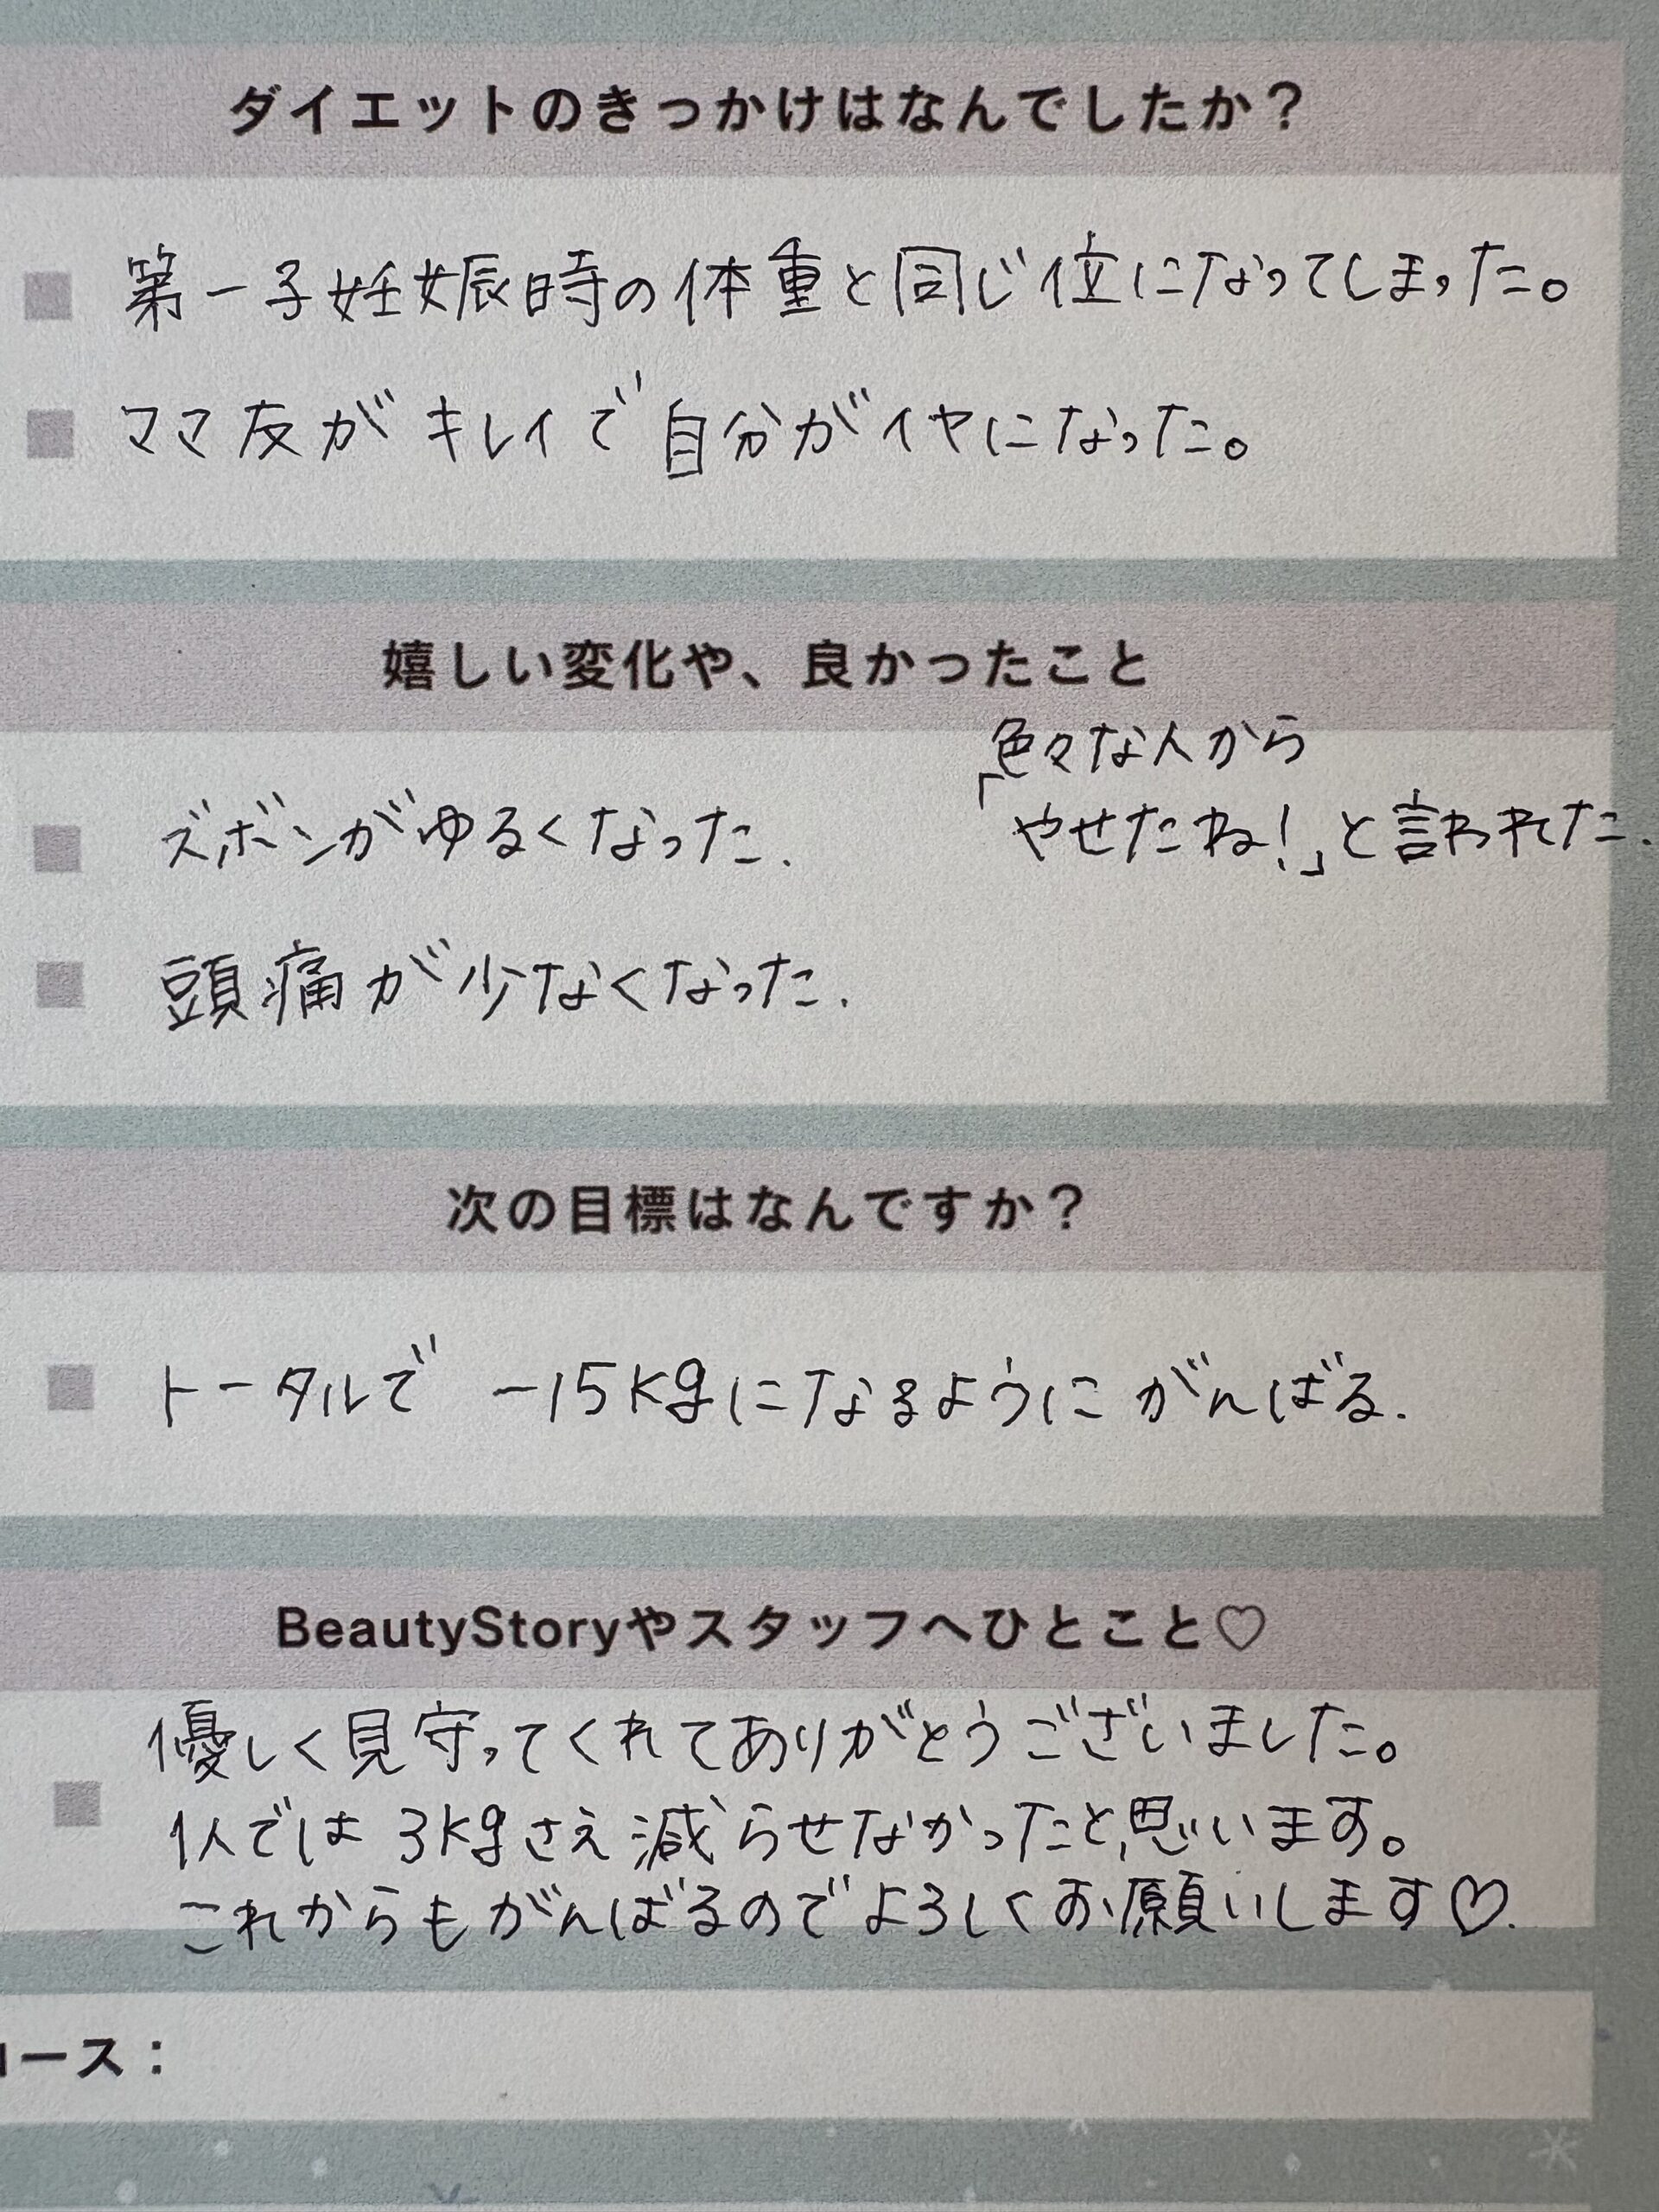 ダイエットのきっかけはなんでしたか？
第一子妊娠時の体重と同じ位になってしまった。
ママ友がキレイで自分がイヤになった。
嬉しい変化や、良かったこと
色々な人から
ズボンがゆるくなった. 「やせたね!」と言われた.
頭痛が少なくなった.
次の目標はなんですか？
トータルで -15kgになるようにがんばる.
BeautyStoryやスタッフへひとこと♡
優しく見守ってくれてありがとうございました。
1人では3kgさえ減らせなかったと思います。
これからもがんばるのでよろしくお願いします♡.
コース：